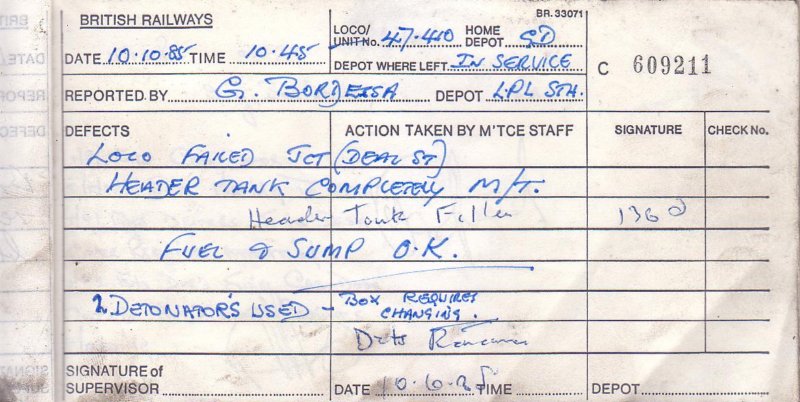 BR. 33071
BRITISH RAILWAYS
DATE 10.10.85 TIME 10.45
LOCO/ UNIT No. 47.410 HOME DEPOT GD
DEPOT WHERE LEFT IN SERVICE
C 609211
REPORTED BY G. BORDESSA DEPOT LPL STN.
DEFECTS ACTION TAKEN BY M'TCE STAFF SIGNATURE CHECK No.
LOCO FAILED JCT (DEAL ST)
HEADER TANK COMPLETELY M/T.
Header Tank Filled
FUEL & SUMP O.K.
2 DETONATOR'S USED - BOX REQUIRES CHANGING.
Dets
SIGNATURE of SUPERVISOR DATE TIME DEPOT